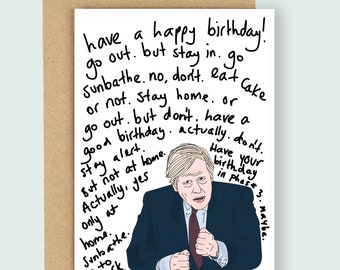 have a happy birthday!
go out. but stay in. go
sunbathe. no, don't. eat cake
or not. stay home. or
go out. but don't. have a
good birthday. actually. don't.
stay alert.
But not at home.
Actually, yes
only at
home.
Sunbathe.
Have your
birthday
in phase 3.
maybe.